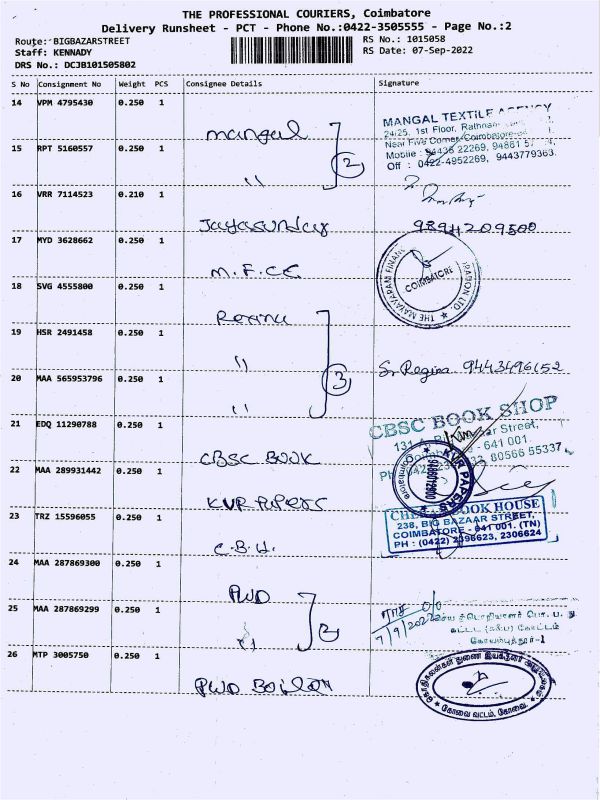 THE PROFESSIONAL COURIERS, Coimbatore
Delivery Runsheet - PCT - Phone No.:0422-3505555 - Page No.:2
Route: BIGBAZARSTREET
Staff: KENNADY
DRS No.: DCJB101505802
RS No.: 1015058
RS Date: 07-Sep-2022
S No Consignment No Weight PCS Consignee Details Signature
14 VPM 4795430 0.250 1
mangal
MANGAL TEXTILE AGENCY
24/25, 1st Floor,
Near Five Corner, Coimbatore
Mobile : 94436 22269, 94881
Off : 0422-4952269, 9443779363.
15 RPT 5160557 0.250 1
"
2
16 VRR 7114523 0.210 1
Jayasunday
9894209500
17 MYD 3628662 0.250 1
M.F.C.E
THE MAYAVARAM FINANC RATION LTD.
COIMBATORE
18 SVG 4555800 0.250 1
19 HSR 2491458 0.250 1
"
Sr Regina 9443496152
20 MAA 565953796 0.250 1
"
3
21 EDQ 11290788 0.250 1
CBSC BOOK
CBSC BOOK SHOP
131 A, ar Street,
- 641 001.
80566 55337
22 MAA 289931442 0.250 1
KVR PAPERS
KVR PAPERS
23 TRZ 15596055 0.250 1
C.B.H.
BOOK HOUSE
238, BIG BAZAAR STREET,
COIMBATORE - 641 001. (TN)
PH : (0422) 2396623, 2306624
24 MAA 287869300 0.250 1
PWD
25 MAA 287869299 0.250 1
"
2
7/9/2022
கோயம்புத்தூர்-1
26 MTP 3005750 0.250 1
PWD Boiler
கோவை வட்டம், கோவை.